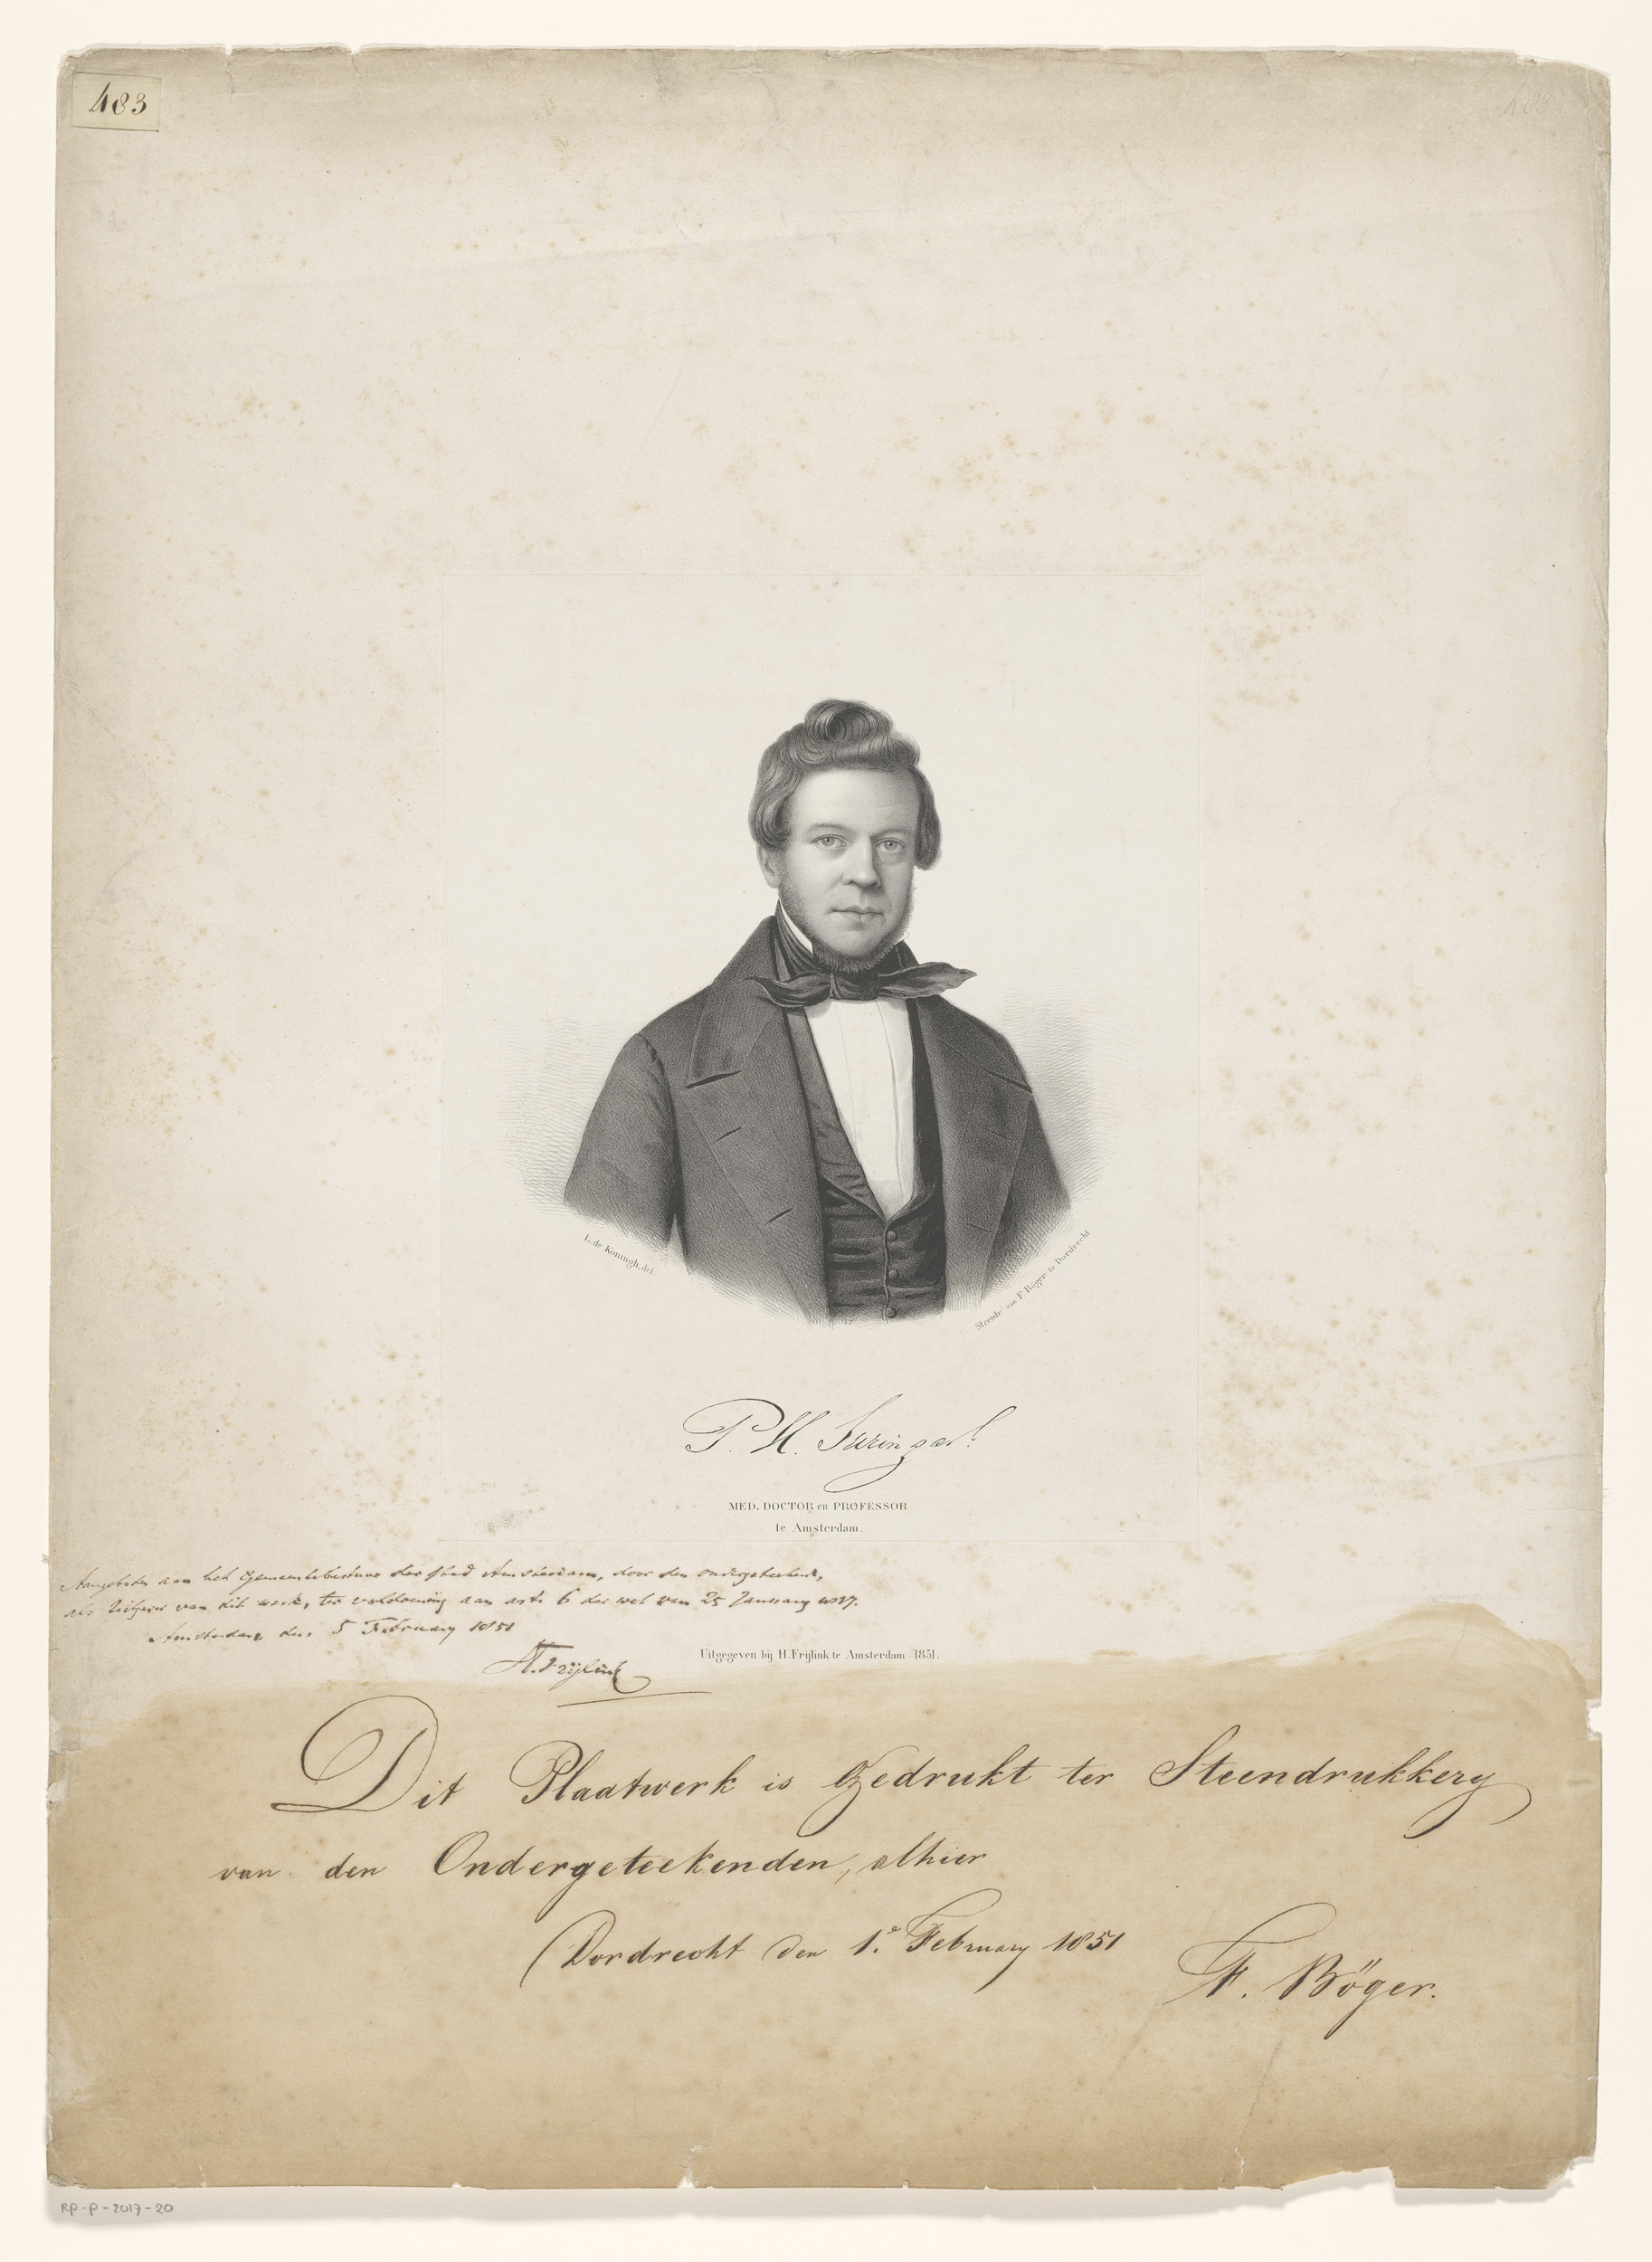 483
L. de Koningh, del.
Steendr. van F. Böger te Dordrecht
P. H. Suringar
MED. DOCTOR en PROFESSOR
te Amsterdam.
Aangeboden aan het Gemeentebestuur der stad Amsterdam, door den ondergeteekende,
als Uitgever van dit werk, ter voldoening aan art. 6 der wet van 25 January 1817.
Amsterdam den 5 February 1851
H. Frijlink
Uitgegeven bij H. Frijlink te Amsterdam 1851.
Dit Plaatwerk is Gedrukt ter Steendrukkery
van den Ondergeteekenden, alhier
Dordrecht den 1.e February 1851
F. Böger.
RP-P-2017-20